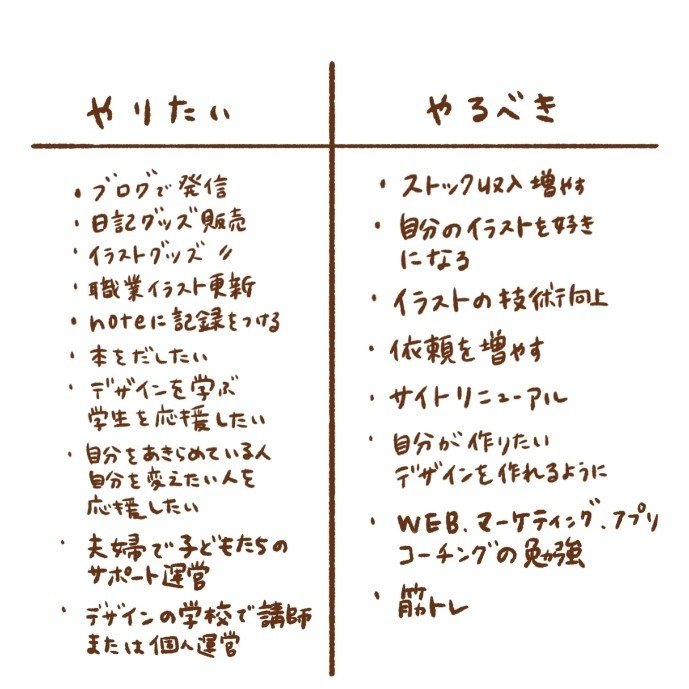 やりたい
・ブログで発信
・日記グッズ販売
・イラストグッズ〃
・職業イラスト更新
・noteに記録をつける
・本をだしたい
・デザインを学ぶ
学生を応援したい
・自分をあきらめている人
自分を変えたい人を
応援したい
・夫婦で子どもたちの
サポート運営
・デザインの学校で講師
または個人運営
やるべき
・ストック収入増やす
・自分のイラストを好き
になる
・イラストの技術向上
・依頼を増やす
・サイトリニューアル
・自分が作りたい
デザインを作れるように
・WEB、マーケティング、アプリ
コーチングの勉強
・筋トレ